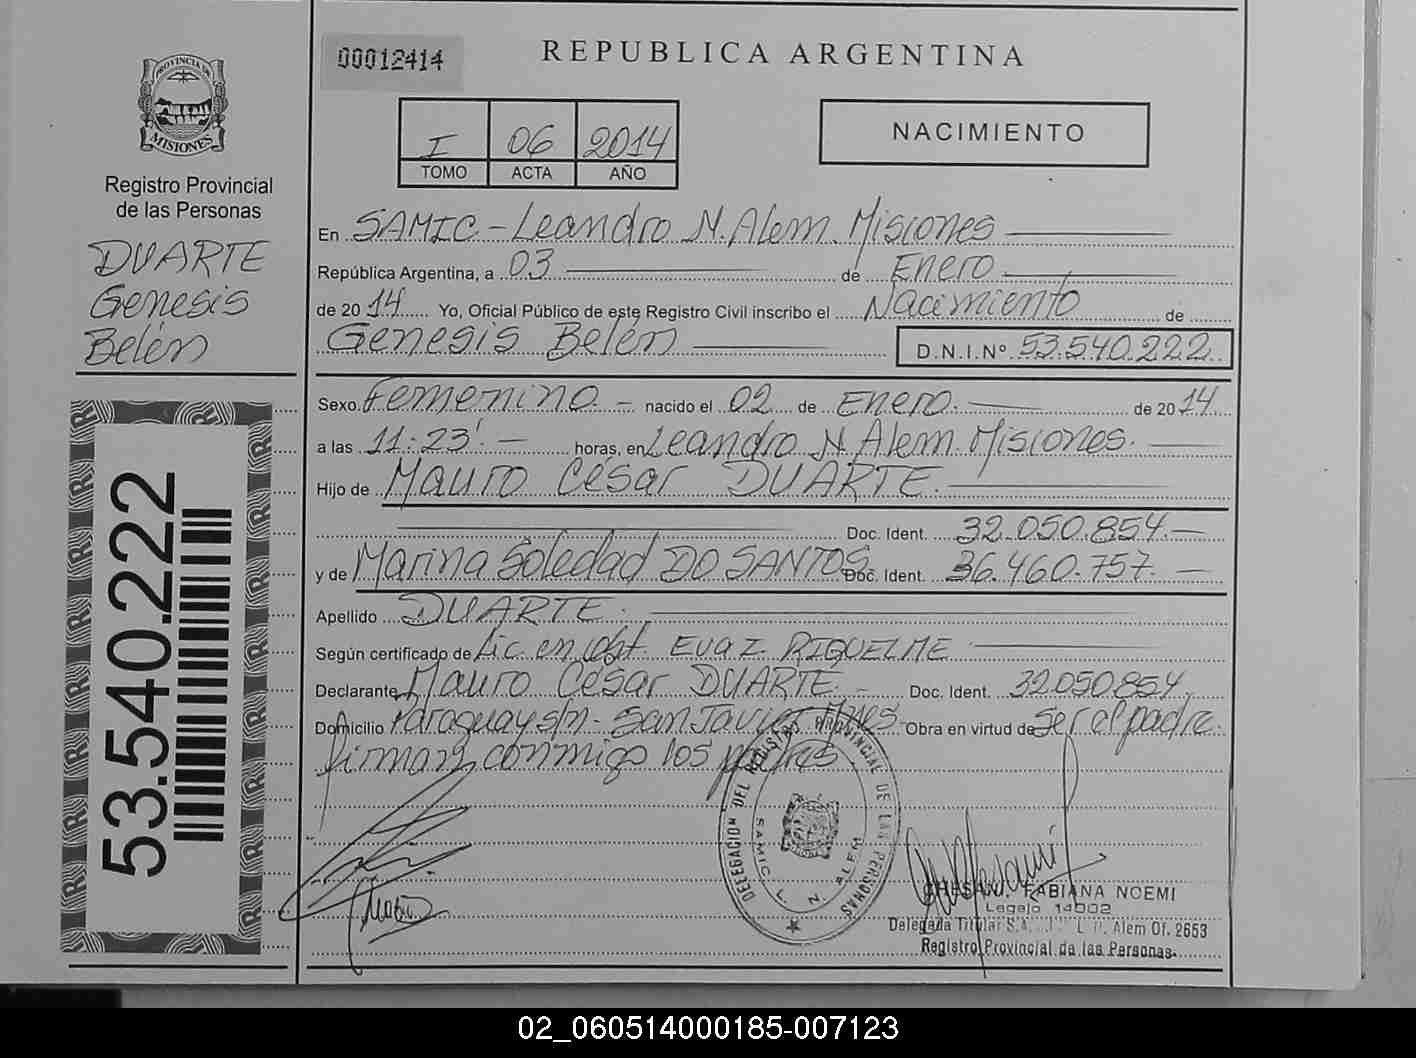 PROVINCIA DE
MISIONES
Registro Provincial
de las Personas
DUARTE
Genesis
Belén
53.540.222
00012414
REPUBLICA ARGENTINA
I 06 2014
TOMO ACTA AÑO
NACIMIENTO
En SAMIC - Leandro N. Alem. Misiones
República Argentina, a 03 de Enero
de 2014 Yo, Oficial Público de este Registro Civil inscribo el Nacimiento de
Genesis Belén D.N.I.Nº 53.540.222
Sexo Femenino. - nacido el 02 de Enero. de 2014
a las 11:23'. - horas, en Leandro N. Alem. Misiones.
Hijo de Mauro César DUARTE.
Doc. Ident. 32.050.854.-
y de Marina Soledad DO SANTOS Doc. Ident. 36.460.757. -
Apellido DUARTE.
Según certificado de Lic. en obst. EVA I. RIQUELME
Declarante Mauro César DUARTE. - Doc. Ident. 32050854
Domicilio Paraguay s/n - San Javier Mnes. Obra en virtud de ser el padre.
firman conmigo los padres.
DELEGACION DEL REGISTRO PROVINCIAL DE LAS PERSONAS
SAMIC L. N. ALEM
FABIANA NOEMI
Legajo 14002
Delegada Titular L. N. Alem Of. 2653
Registro Provincial de las Personas
02_060514000185-007123